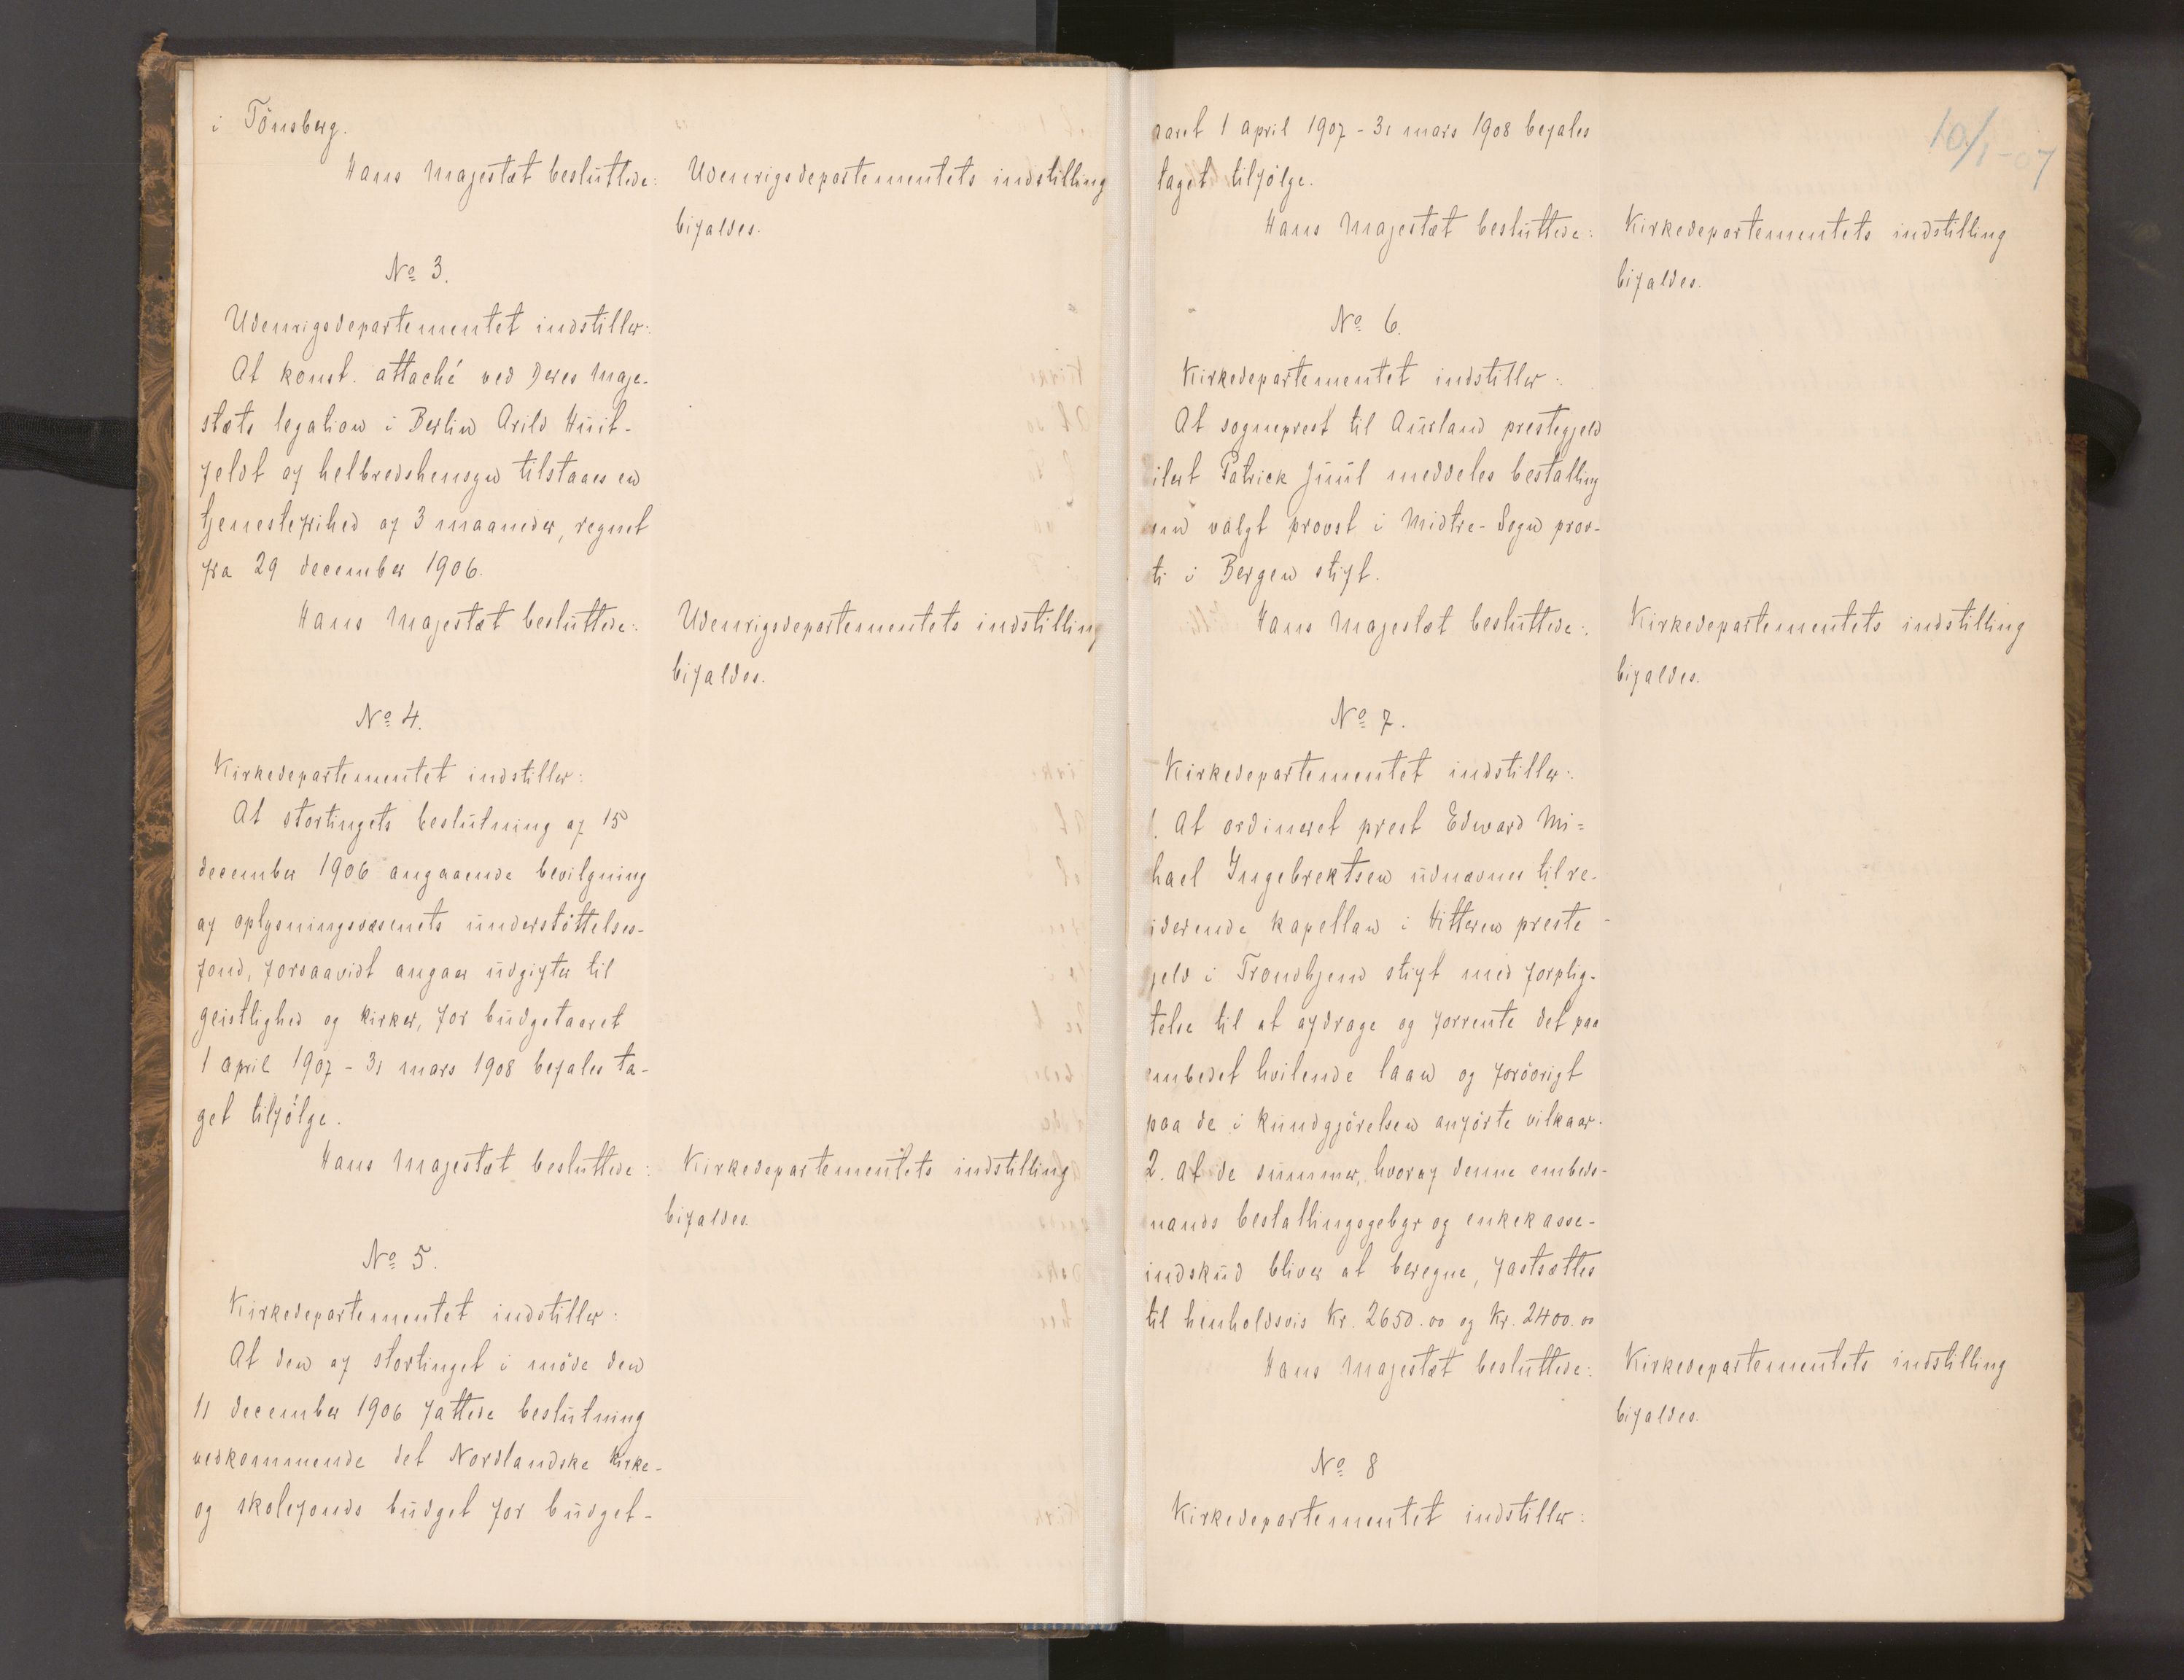 i Tönsberg.
Hans Majestæt besluttede: Udenrigsdepartementets indstilling
bifaldes.
No 3.
Udenrigsdepartementet indstiller:
At konst. attaché ved Deres Maje-
stæts legation i Berlin Arild Huit-
feldt af helbredshensyn tilstaaes en
tjenestefrihed af 3 maaneder, regnet
fra 29 december 1906.
Hans Majestæt besluttede: Udenrigsdepartementets indstilling
bifaldes.
No 4.
Kirkedepartementet indstiller:
At stortingets beslutning af 15
december 1906 angaaende bevilgning
af oplysningsvæsenets understöttelses-
fond, forsaavidt angaar udgifter til
geistlighed og kirker, for budgetaaret
1 april 1907 - 31 mars 1908 befales ta-
get tilfölge.
Hans Majestæt besluttede: Kirkedepartementets indstilling
bifaldes.
No 5.
Kirkedepartementet indstiller:
At den af stortinget i möde den
11 december 1906 fattede beslutning
vedkommende det Nordlandske kirke-
og skolefonds budget for budget-
10/1-07
aaret 1 april 1907 - 31 mars 1908 befales
taget tilfölge.
Hans Majestæt besluttede: Kirkedepartementets indstilling
bifaldes.
No 6.
Kirkedepartementet indstiller:
At sogneprest til Aurland prestegjeld
ilert Patrick Juul meddeles bestalling
om valgt provst i Midtre-Sogn prov-
ti i Bergen stift.
Hans Majestæt besluttede: Kirkedepartementets indstilling
bifaldes.
No 7.
Kirkedepartementet indstiller:
1. At ordineret prest Edward Mi=
hael Ingebrektsen udnævnes til re-
iderende kapellan i Hitteren preste-
gjeld i Trondhjem stift med forplig-
telse til at afdrage og forrente det paa
embedet hvilende laan og forövrigt
paa de i kundgjörelsen anförte vilkaar.
2. At de summer, hvoraf denne embeds-
mands bestallingsgebyr og enkekasse-
indskud bliver at beregne, fastsættes
til henholdsvis Kr. 2650.00 og Kr. 2400.00
Hans Majestæt besluttede: Kirkedepartementets indstilling
bifaldes.
No 8
Kirkedepartementet indstiller: